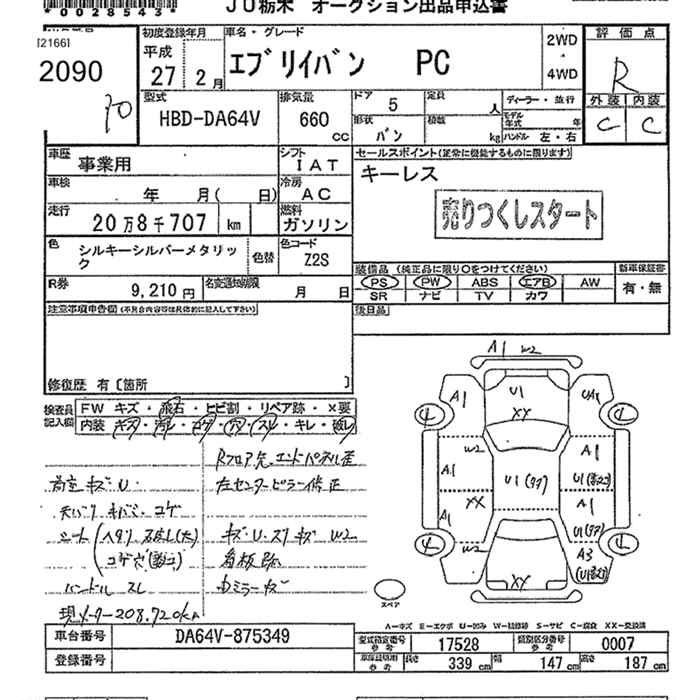 *0028543*
JU栃木 オークション出品申込書
2090
初度登録年月
平成
27年2月
車名・グレード
エブリイバン PC
2WD
・
4WD
評価点
R
外装 内装
C C
型式
HBD-DA64V
排気量
660
cc
ドア 5
定員 人
形状 バン
積載 kg
ディーラー・並行
モデル年式 年
ハンドル 左・右
車歴 事業用
シフト IAT
車検 年 月( 日)
冷房 AC
走行 20万8千707 km
燃料 ガソリン
色 シルキーシルバーメタリック
色替
色コード Z2S
R券 9,210 円
名変通知期限 月 日
セールスポイント(正常に機能するものに限ります)
キーレス
売りつくしスタート
装備品(純正品に限り○をつけてください)
新車保証書
PS PW ABS エアB AW
SR ナビ TV カワ
有・無
後日品
注意事項申告欄(不具合内容等は具体的に記入して下さい)
修復歴 有〔箇所 〕
検査員記入欄
FW キズ・飛石・ヒビ割・リペア跡・×要
内装 キズ・汚レ・コゲ・穴・スレ・キレ・破レ
A1 W2
A1 U1 UA1
XX
W2
A1 U1
A1
XX
A1
W2
A3
XX
スペア
Rフロア先、エンドパネル歪
左センターピラー修正
荷室キズ・U・
ハンドル スレ
キズ・U・スリキズ W2
看板跡
現メーター208,720km
A-キズ E-エクボ U-凹み W-補修跡 S-サビ C-腐食 XX-交換済
車台番号 DA64V-875349
登録番号
型式指定番号 参考 17528
類別区分番号 参考 0007
車庫証明用 参考 長さ 339 cm 幅 147 cm 高さ 187 cm